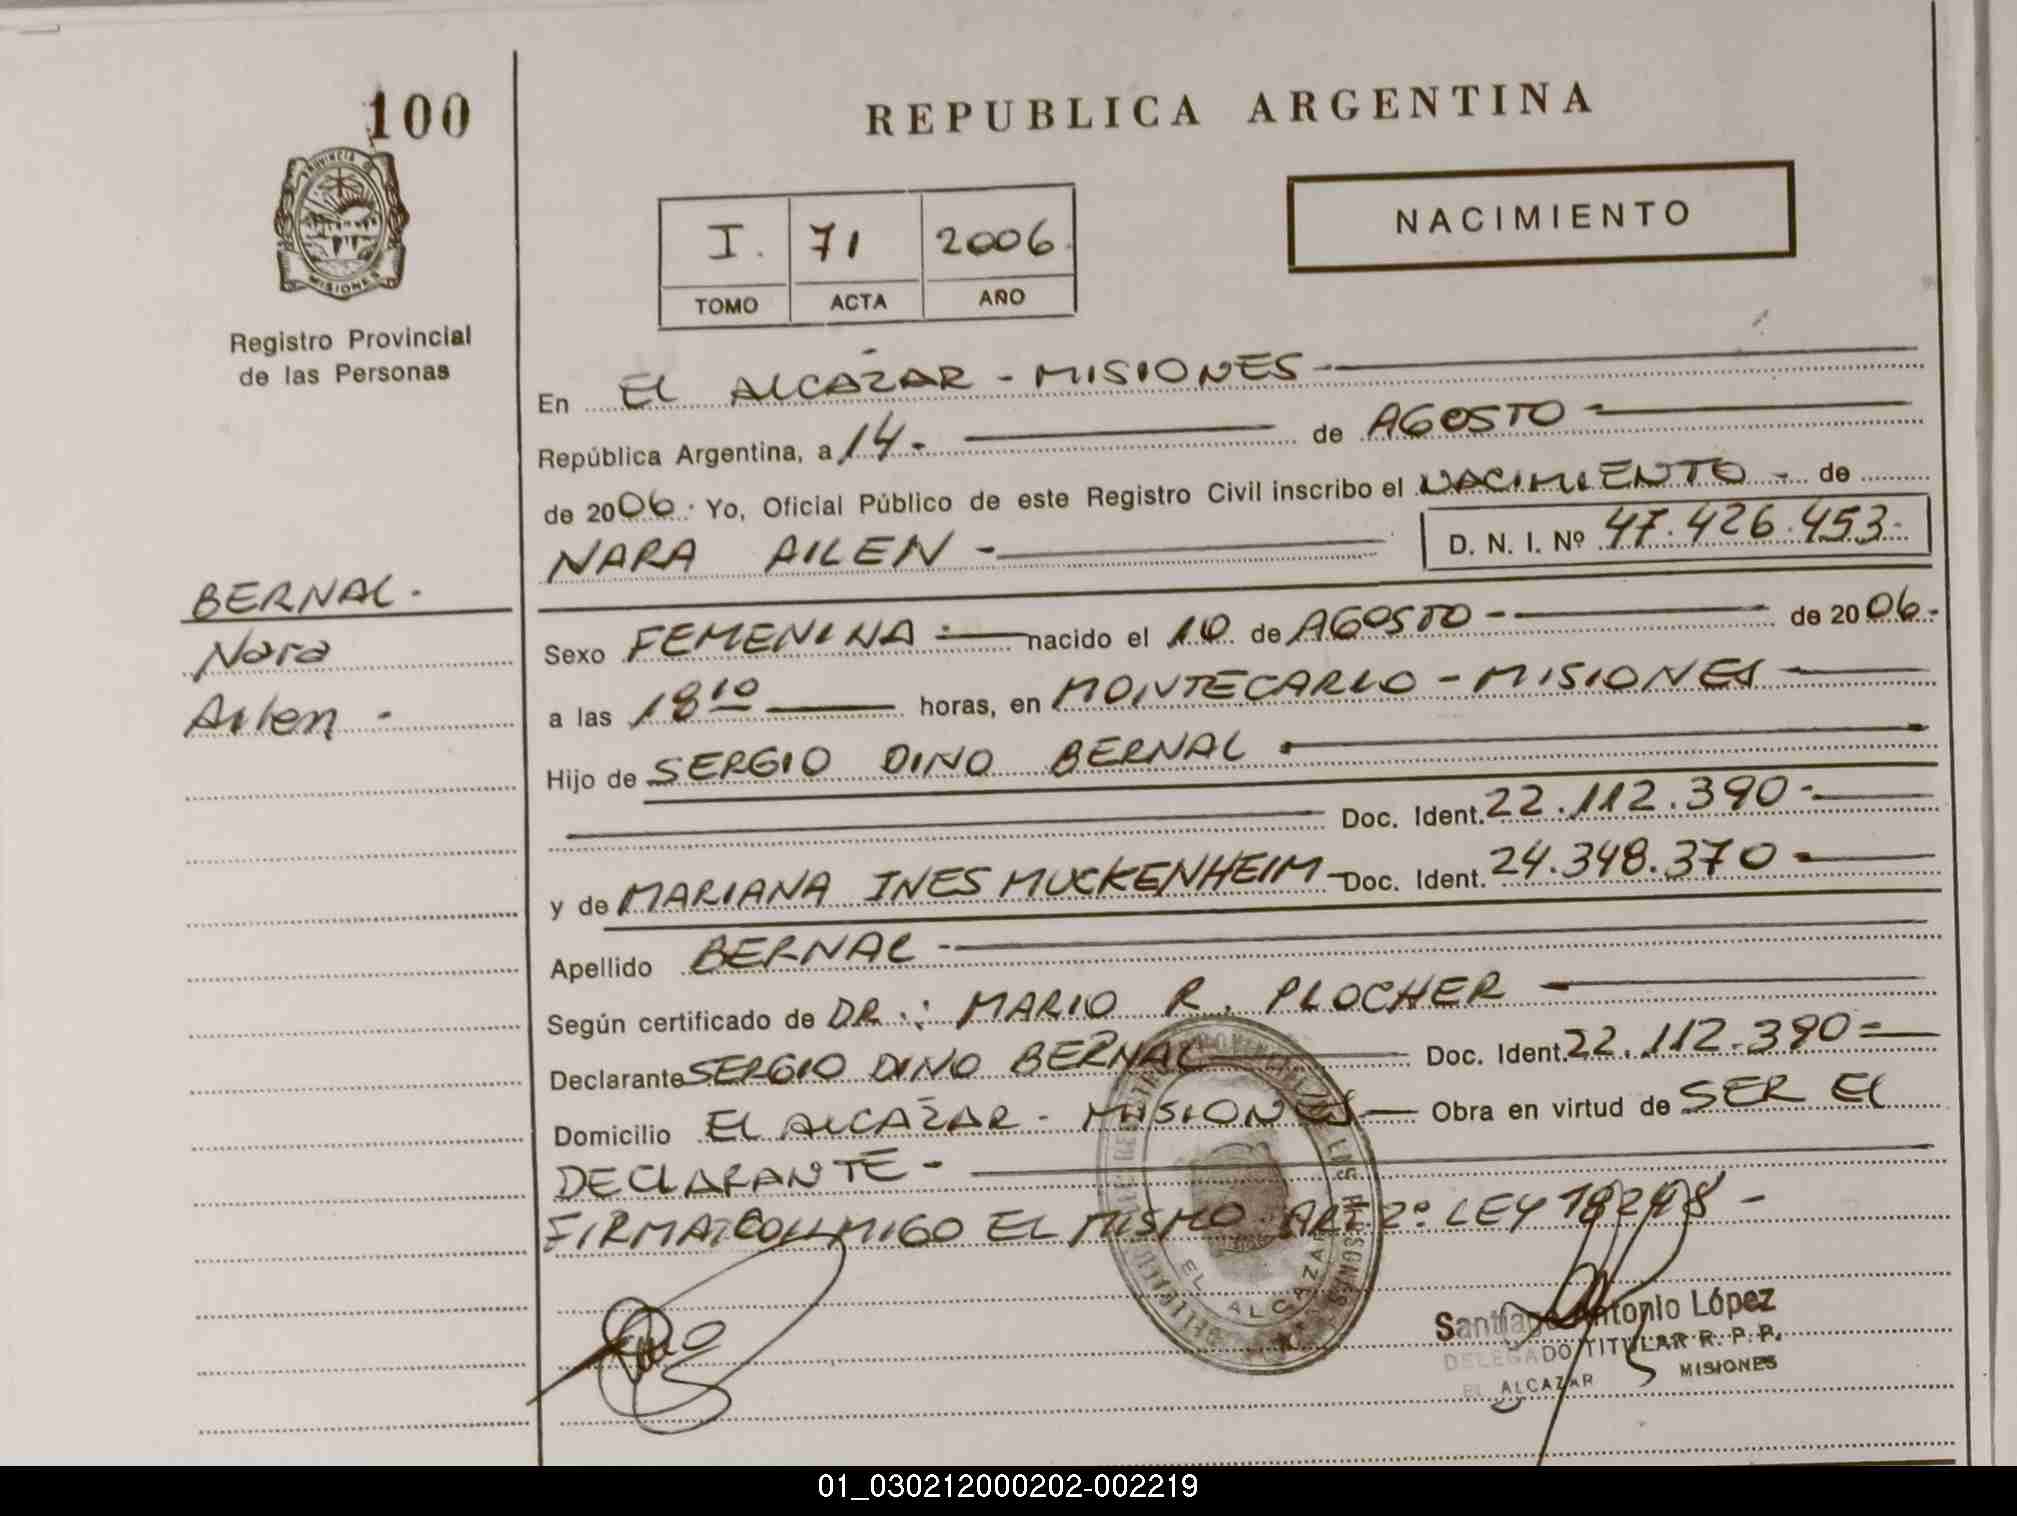 100
REPUBLICA ARGENTINA
PROVINCIA DE
MISIONES
Registro Provincial
de las Personas
I. 71 2006.
TOMO ACTA AÑO
NACIMIENTO
En EL ALCAZAR - MISIONES
República Argentina, a 14. de AGOSTO
de 2006. Yo, Oficial Público de este Registro Civil inscribo el NACIMIENTO - de
NARA AILEN - D. N. I. Nº 47.426.453.
BERNAL.
Nara
Ailen -
Sexo FEMENINA nacido el 10 de AGOSTO - de 2006.
a las 18 10 horas, en MONTECARLO - MISIONES
Hijo de SERGIO DINO BERNAL
Doc. Ident. 22.112.390
y de MARIANA INES MUCKENHEIM - Doc. Ident. 24.348.370
Apellido BERNAL
Según certificado de DR.: MARIO R. PLOCHER
Declarante SERGIO DINO BERNAL Doc. Ident. 22.112.390=
Domicilio EL ALCAZAR - MISIONES Obra en virtud de SER EL
DECLARANTE -
FIRMA CONMIGO EL MISMO. ART 2º LEY 18248 -
EL ALCAZAR
Santiago Antonio López
DELEGADO TITULAR R. P. P.
EL ALCAZAR MISIONES
01_030212000202-002219